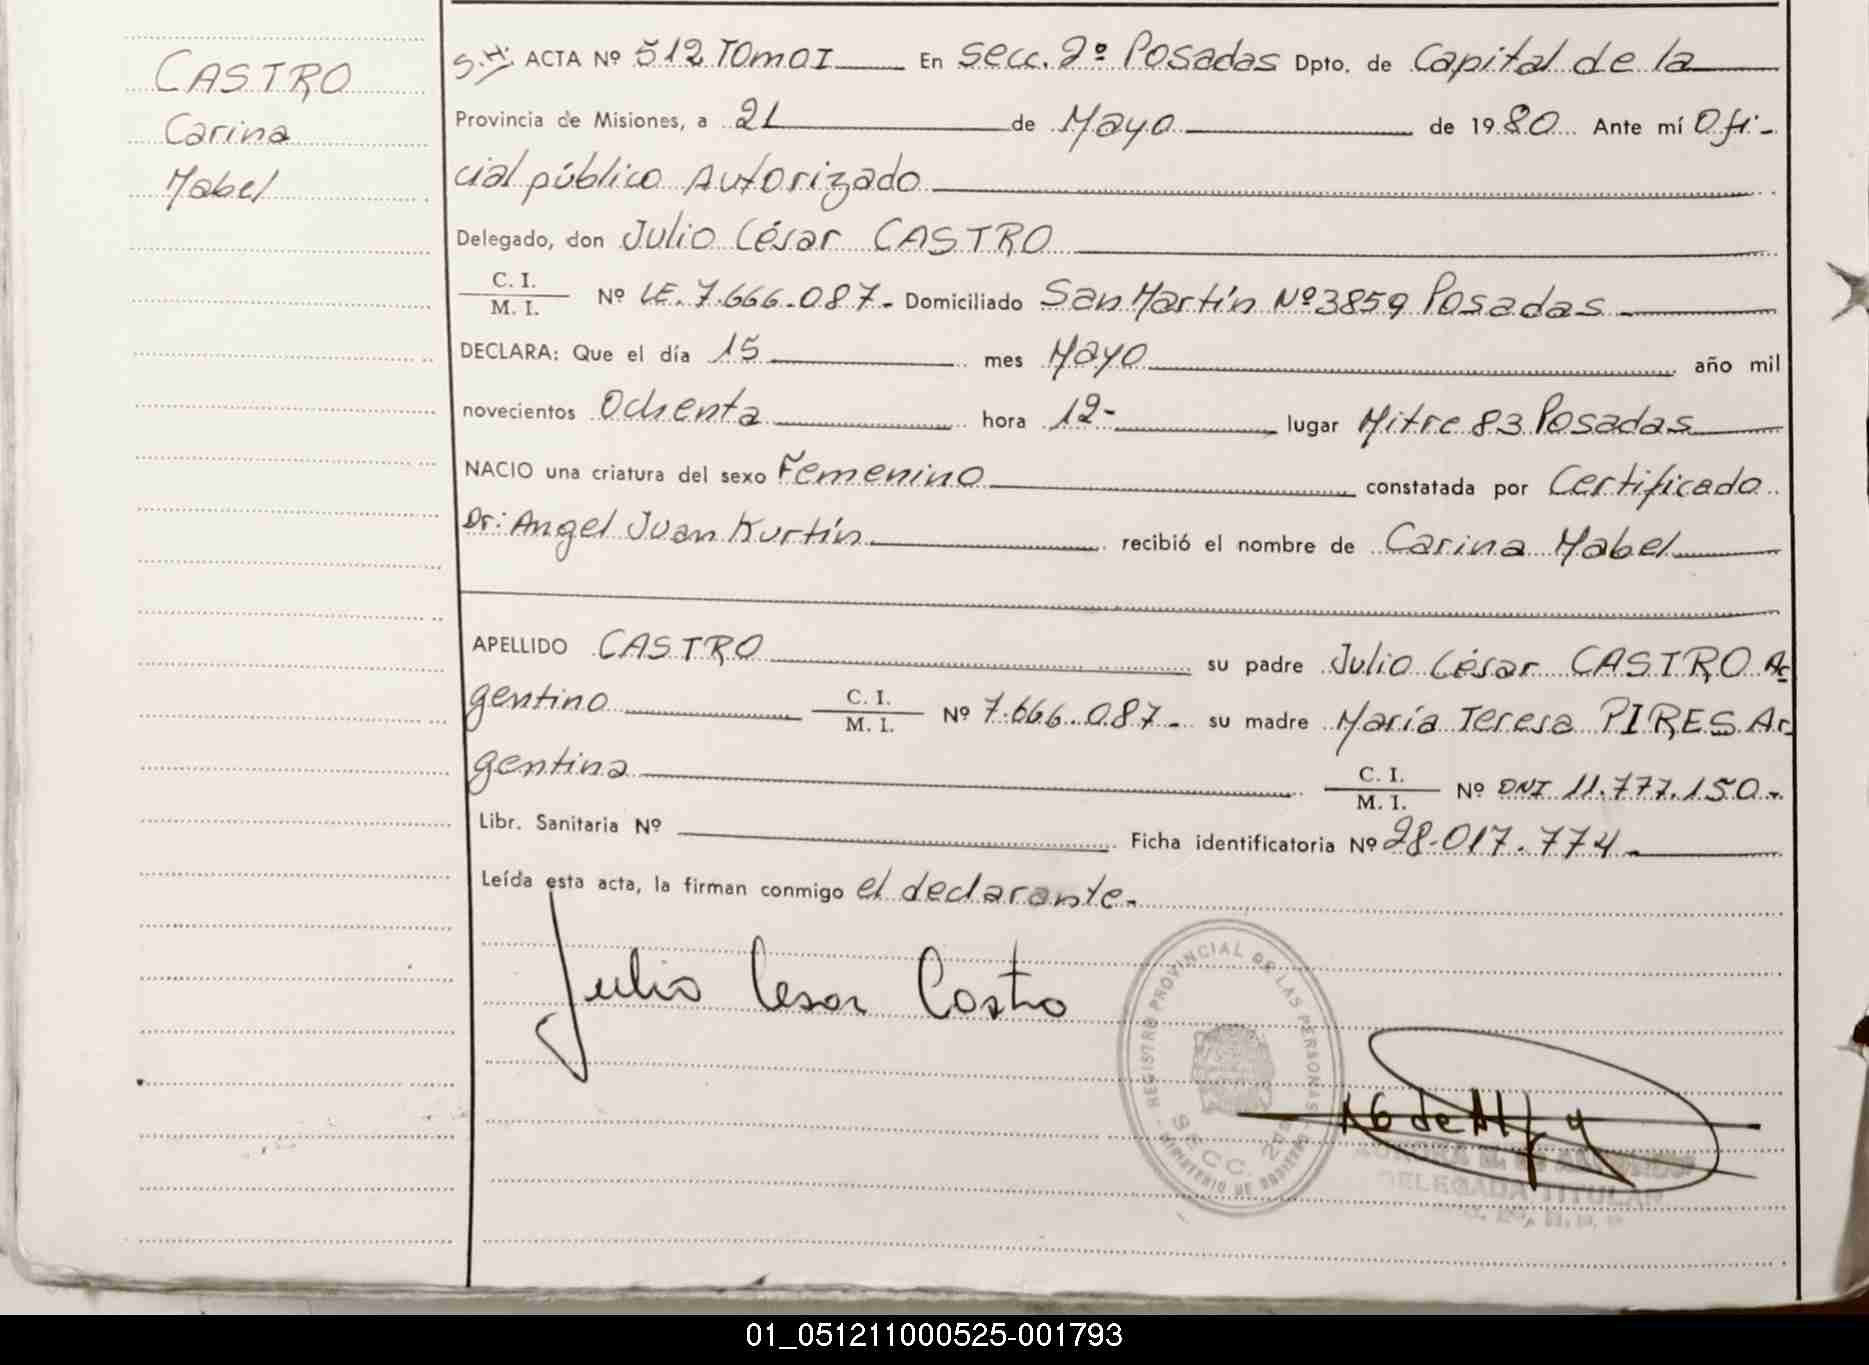 CASTRO
Carina
Mabel
S.H. ACTA Nº 512 TOMO I En Secc. 2º Posadas Dpto. de Capital de la
Provincia de Misiones, a 21 de Mayo de 1980 Ante mí Ofi-
cial público Autorizado
Delegado, don Julio César CASTRO
C. I.
M. I. Nº LE. 7.666.087- Domiciliado San Martín Nº 3859 Posadas
DECLARA: Que el día 15 mes Mayo año mil
novecientos Ochenta hora 12- lugar Mitre 83 Posadas
NACIO una criatura del sexo Femenino constatada por Certificado
Dr: Angel Juan Kurtín recibió el nombre de Carina Mabel
APELLIDO CASTRO su padre Julio César CASTRO Ar
gentino C. I. M. I. Nº 7.666.087- su madre María Teresa PIRES Ar
gentina C. I. M. I. Nº DNI 11.777.150-
Libr. Sanitaria Nº Ficha identificatoria Nº 28.017.774-
Leída esta acta, la firman conmigo el declarante-
Julio Cesar Castro
REGISTRO PROVINCIAL DE LAS PERSONAS
SECC. 2da
MINISTERIO DE GOBIERNO
DELEGADA TITULAR
01_051211000525-001793